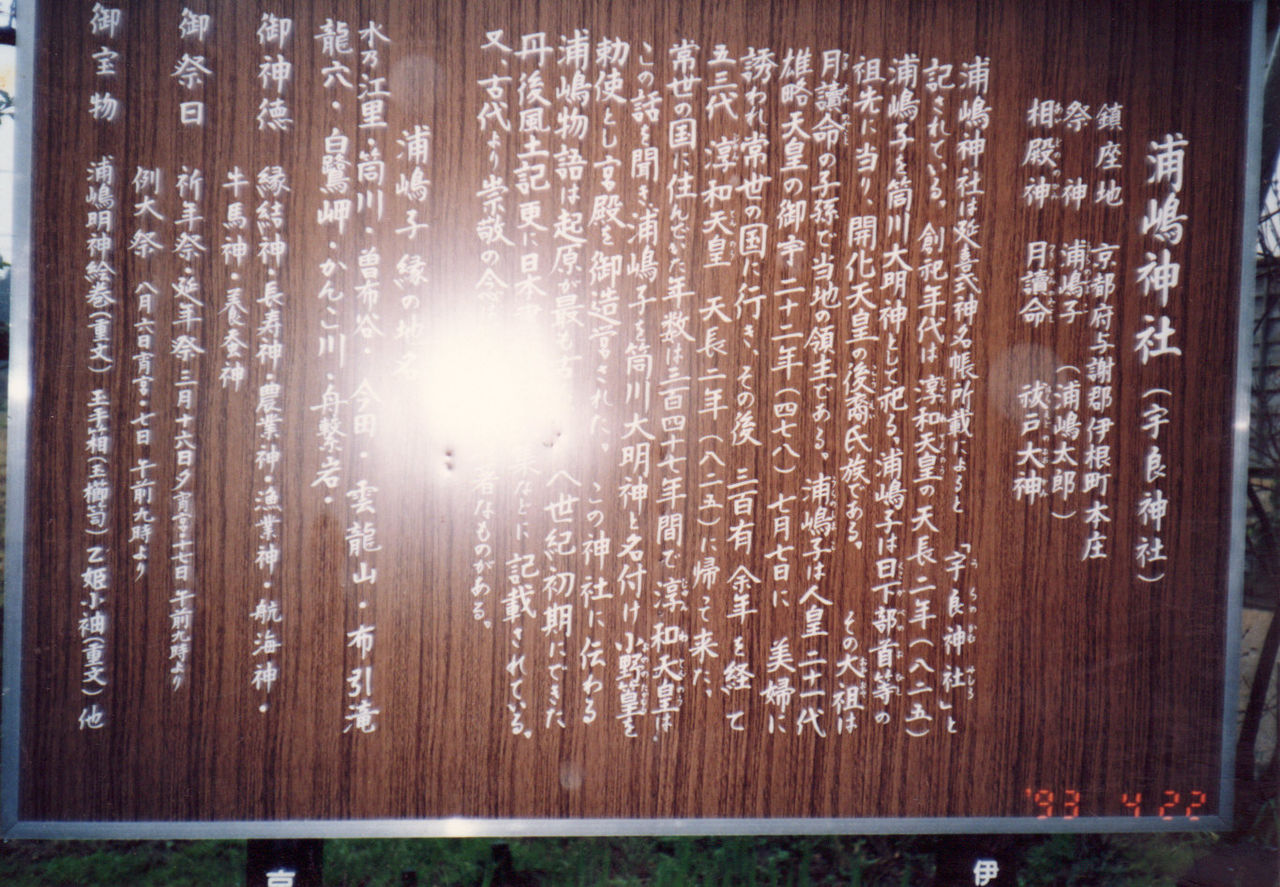 浦嶋神社（宇良神社）
鎮座地 京都府与謝郡伊根町本庄
祭神 浦嶋子（浦嶋太郎）
相殿神 月讀命 祓戸大神
浦嶋神社は延喜式神名帳所載によると「宇良神社」と
記されている。創祀年代は淳和天皇の天長二年（八二五）
浦嶋子を筒川大明神として祀る。浦嶋子は日下部首等の
祖先に当り、開化天皇の後裔氏族である。その大祖は
月讀命の子孫で当地の領主である。浦嶋子は人皇二十一代
雄略天皇の御宇二十二年（四七八）七月七日に美婦に
誘われ常世の国に行き、その後三百有余年を経て
五三代淳和天皇 天長二年（八二五）に帰って来た。
常世の国に住んでいた年数は三百四十七年間で淳和天皇は
この話を聞き浦嶋子を筒川大明神と名付け小野篁を
勅使とし宮殿を御造営された。この神社に伝わる
浦嶋物語は起原が最も古 八世紀初期にできた
丹後風土記更に日本 などに記載されている。
又、古代より崇敬の念 著なものがある。
浦嶋子縁の地名
水乃江里・筒川・曽布谷・今田・雲龍山・布引滝
龍穴・白鷺岬・かんこ川・舟繋岩・
御神徳 縁結神・長寿神・農業神・漁業神・航海神・
牛馬神・養蚕神
御祭日 祈年祭・延年祭 三月十六日夕宵宮・十七日午前九時より
例大祭 八月六日宵宮・七日午前九時より
御宝物 浦嶋明神絵巻（重文）玉手箱（玉櫛笥）乙姫小袖（重文）他
'93 4 22
京
伊